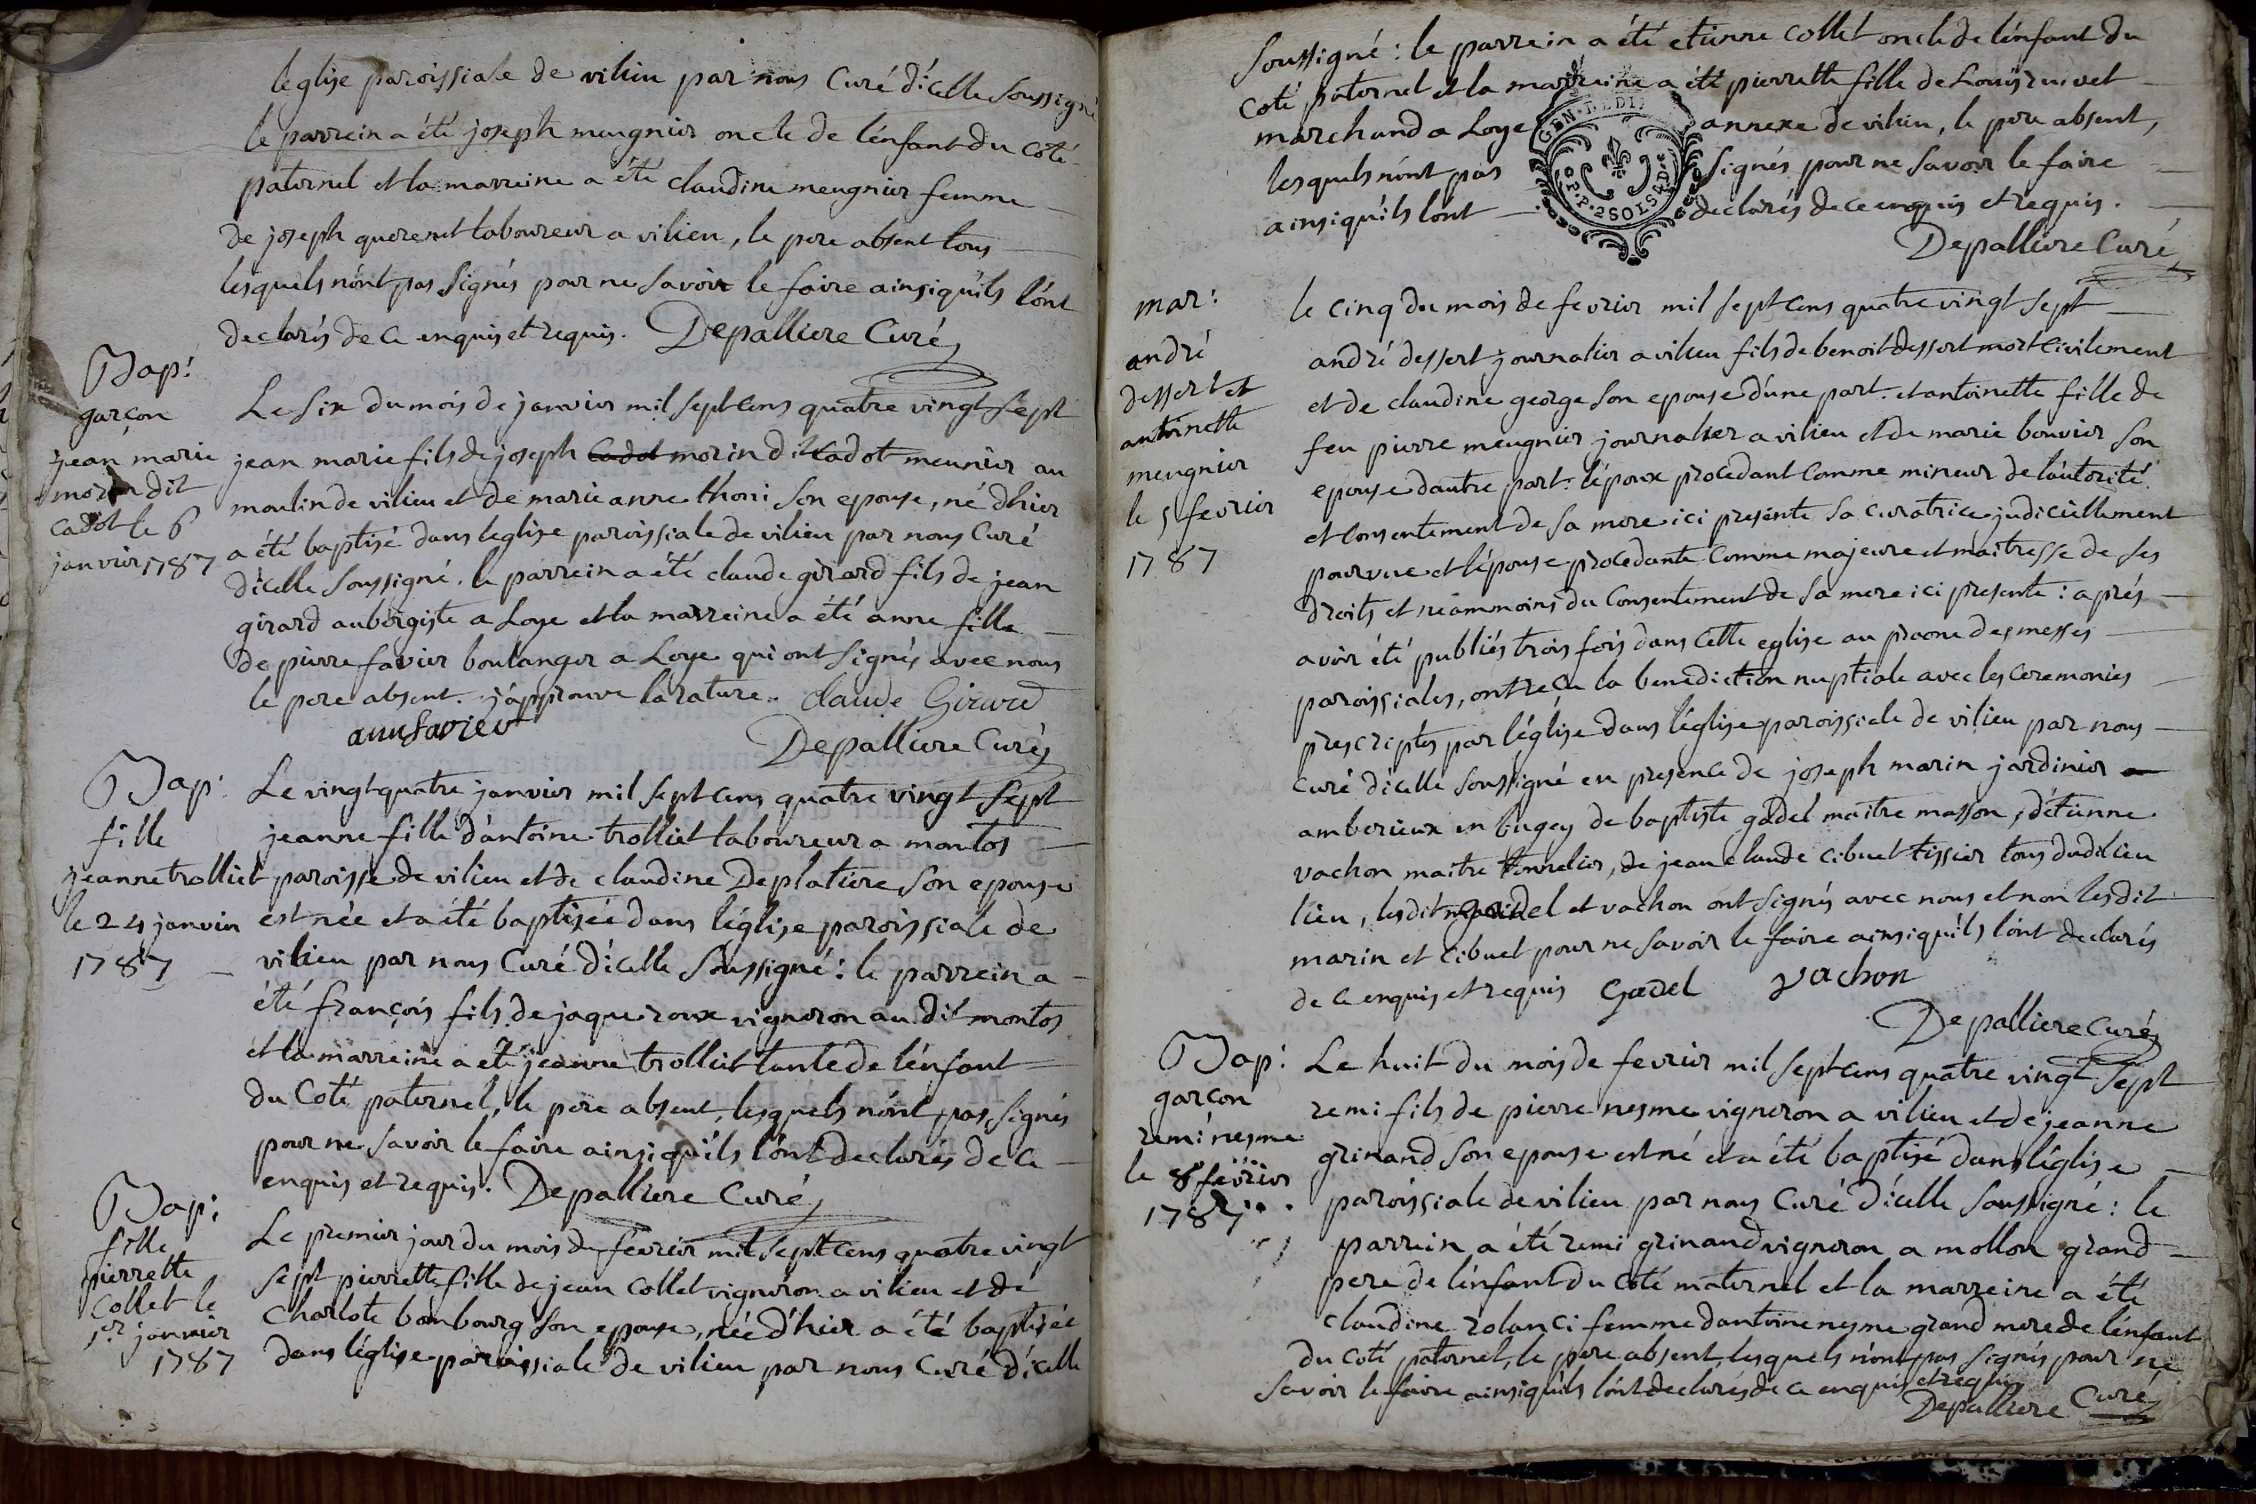 léglise paroissiale de vilieu par nous Curé d'icelle Soussigné
le parrein a été joseph meugnier oncle de l'enfant du coté
paternel et la marreine a été claudine meugnier femme
de joseph laboureur a vilieu, le pere absent tous
lesquels n'ont pas signés pour ne savoir le faire ainsiqu'ils l'ont
declarés de ce enquis et requis. Depalliere Curé
Bap:
garçon
jean marie
morin dit
cadot le 6
janvier 1787
Le Six du mois de janvier mil sept cens quatre vingt sept
jean marie fils de joseph cadot morin dit Cadot meunier au
moulin de vilieu et de marie anne thoni son epouse, né d'hier
a été baptisé dans leglise paroissiale de vilieu par nous Curé
d'icelle soussigné. le parrein a été claude girard fils de jean
girard aubergiste a Loye et la marreine a été anne fille
de pierre favier boulanger a Loye qui ont signés avec nous
le pere absent. j'approuve la rature. Claude Girard
ann favier
Depalliere Curé
Bap:
fille
jeanne trolliet
le 24 janvier
1787
Le vingtquatre janvier mil sept cens quatre vingt sept
jeanne fille d'antoine trolliet laboureur a montos
paroisse de vilieu et de claudine Deplatiere son epouse
est née et a été baptisée dans léglise paroissiale de
vilieu par nous Curé d'icelle Soussigné: le parrein a
été françois fils de jaque roux vigneron au dit montos
et la marreine a eté jeanne trolliet tante de l'enfant
du Coté paternel, le pere absent, lesquels n'ont pas signés
pour ne savoir le faire ainsiqu'ils l'ont declarés de ce
enquis et requis. Depalliere Curé
Bap:
fille
pierrette
Collet le
1er janvier
1787
Le premier jour du mois de fevrier mil sept cens quatre vingt
sept pierrette fille de jean Collet vigneron a vilieu et de
Charlote bonbourg son epouse, née d'hier a été baptisée
dans léglise paroissiale de vilieu par nous Curé d'icelle
Soussigné: le parrein a été etienne Collet oncle de l'enfant du
coté paternel et la marreine a été pierrette fille de Louis
marchand a Loye annexe de vilieu, le pere absent,
lesquels n'ont pas signés pour ne savoir le faire
ainsiqu'ils l'ont declarés de ce enquis et requis.
GEN.
P.P. 2 SOLS 4 D
Depalliere Curé
mar:
andré
dessert et
antoinette
meugnier
le 5 fevrier
1787
le cinq du mois de fevrier mil sept cens quatre vingt sept
andré dessert journalier a vilieu fils de benoit dessert mort Civilement
et de claudine george son epouse d'une part. et antoinette fille de
feu pierre meugnier journalier a vilieu et de marie bouvier son
epouse d'autre part. l'époux procedant comme mineur de l'autorité
et consentement de sa mere ici presente sa curatrice judiciellement
pourvue et l'épouse procedante comme majeure et maitresse de ses
droits et neammoins du Consentement de sa mere ici presente: aprés
avoir été publiés trois fois dans cette eglise au prone des messes
paroissiales, ont reçu la benediction nuptiale avec les Ceremonies
prescriptes par léglise dans léglise paroissiale de vilieu par nous
Curé d'icelle soussigné en presence de joseph marin jardinier a
amberieux en bugey de baptiste gadel maitre masson, d'etienne
vachon maitre tonnelier, de jean claude cibuet tissier tous dudit lieu
lieu, lesdit gadel et vachon ont signés avec nous et non lesdit
marin et Cibuet pour ne savoir le faire ainsiqu'ils l'ont declarés
de ce enquis et requis Gadel vachon
Depalliere Curé
Bap:
garçon
remi nesme
le 8 fevrier
1787
Le huit du mois de fevrier mil sept cens quatre vingt sept
remi fils de pierre nesme vigneron a vilieu et de jeanne
grinand son epouse est né et a été baptisé dans léglise
paroissiale de vilieu par nous Curé d'icelle soussigné: le
parrein a été remi grinand vigneron a mollon grand
pere de l'enfant du coté maternel et la marreine a été
claudine rolanci femme d'antoine nesme grand mere de l'enfant
du coté paternel, le pere absent, lesquels n'ont pas signés pour ne
savoir le faire ainsiqu'ils l'ont declarés de ce enquis et requis
Depalliere Curé